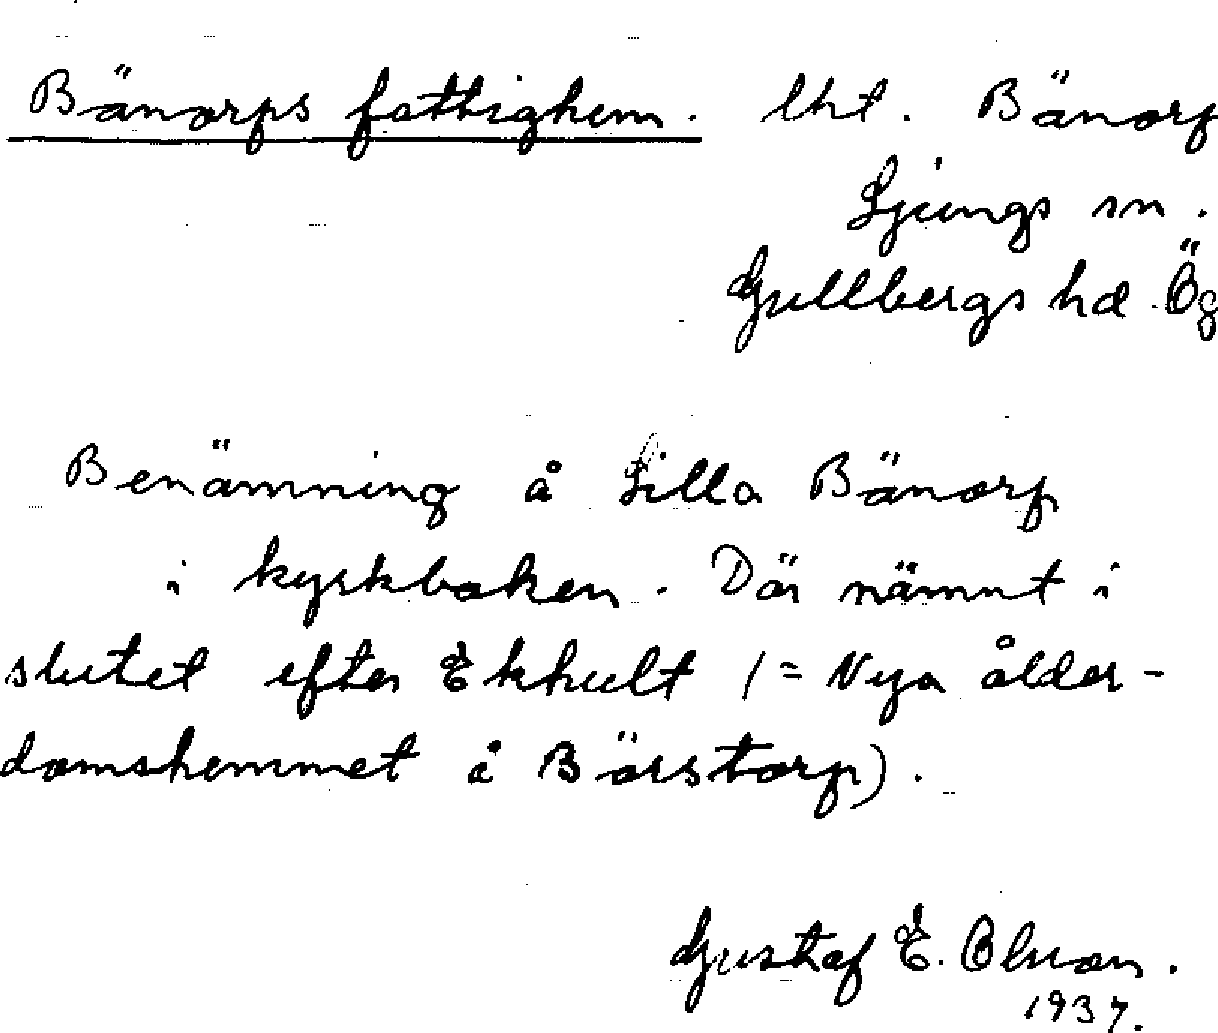 Bänorps fattighem. lht. Bänorp
Ljungs sn.
Gullbergs hd Ög
Benämning å Lilla Bänorp
i kyrkboken. Där nämnt i
slutet efter Ekhult (= Nya ålder-
domshemmet å Börstorp).
Gustaf E. Olson.
1937.